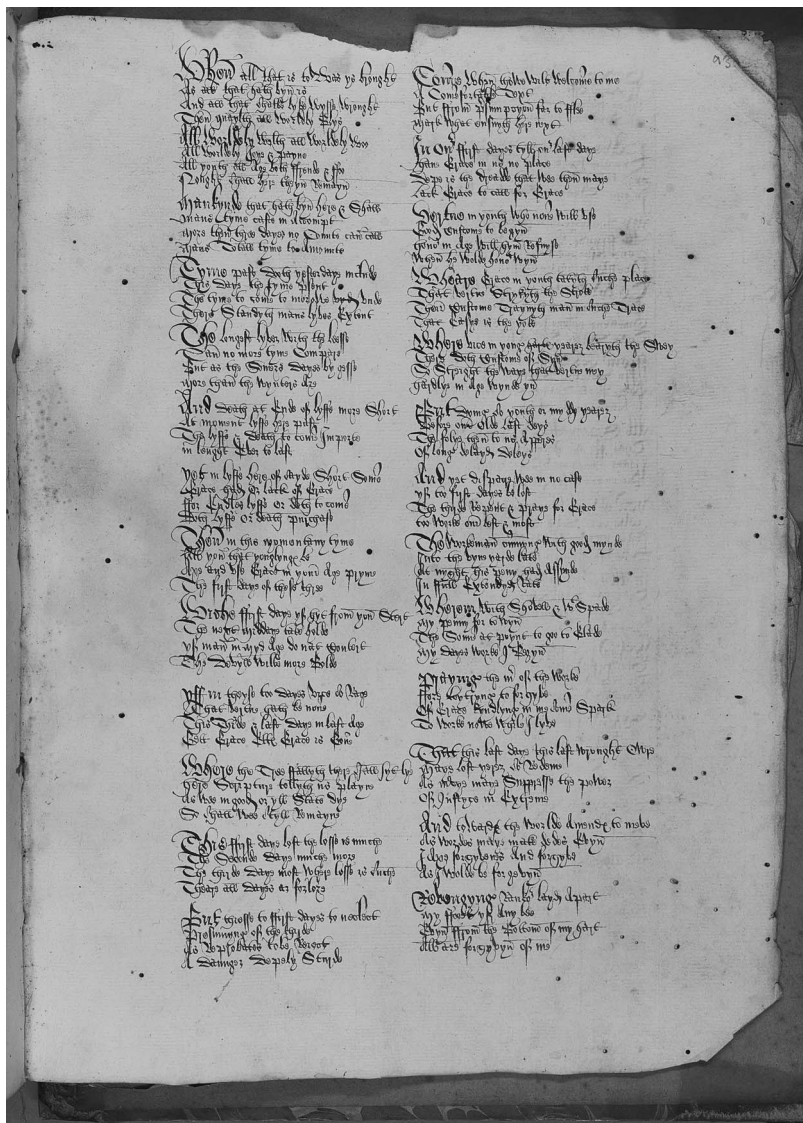 When all that is to was ys brought
As all that hath byn is
And all that shalbe lyke wysse wrought
Then quaylth all worldly
All worldely welth all worldely woo
All worldely Joys & payne
All youth all Age both ffrende & ffoo
Nought shall here then Remayn
Mankynde that hath byn here & shall
mans tyme caste in Accompt
more then thre days no can call
mans Totall tyme to Amounte
Tyme past doth yesterdaye include
This daye the tyme present
The tyme to come to morowe
There standyth mans lyves Extent
The longest lyver with the leste
Can no more tyme Compare
But as the somers dayes by gesse
more than the wynters Are
And death at Ende of lyffe more short
At moment lyffe here past
The lyffe & death to come Importe
in lenght Ever to last
yet in lyffe here of sayde short some
Grace hade or lack of Grace
ffor Endles lyffe or deth to come
Both lyffe or death purchase
Then in this momentany tyme
All you that yonglynge be
Aske and use Grace in your Age pryme
The first daye of those thre
Wiche ffirst daye yf yt from you stert
The next middaye take holde
yf man in myd Age do not convert
The Devyll wilbe more Bolde
yff in theyse too dayes vyce do Rage
That vertue hath be none
This Thirde & last daye in last Age
Gett Grace Elles Grace is Gone
Where the Tree ffallyth there shall yt lye
here Scripture tellyth us playne
As we in good or yll State dye
So shall wee styll Remayne
This ffirst daye lost the losse is muche
The Seconde daye muche more
The thirde daye most whose losse is suche
Theare all dayes ar forlore
But those to ffirst dayes to neclect
Presuming of the thirde
As Reprobates to be Reject
A daunger depely Sturde
Come when thowe wilt welcome to me
A Comfortable Text
But ffrom presumpcyon far to fflee
mark what ensuyth here next
In our ffirst dayes tyll our last daye
have Grace in us no place
Depe is the dreade that wee then maye
Lack Grace to call for Grace
Vertue in youth who none will use
Good Customs to begyn
gone in Age will hym Refuse
When he wolde hone wyn
Wheare Grace in youth takyth suche place
That vertue Stryketh the stroke
Then Custome Traynyth man in suche Trace
That Easye is the yoke
Where vice in yonge yeares bearyth the Swey
There doth Custome of Syn
So Streight the waye that vertue mey
hardlye in Age wynde yn
But Doinge so youth or myddy yeares
Before our Olde Last daye
The folye then to us Apeares
Of longe delayde delays
And yet dispaye wee in no case
yf too first dayes be lost
The thirde Repent & praye for Grace
too worke our best & most
The workeman Comynge with good mynde
Into the vyneyarde late
At night his peny had Assynde
In ffull Extendyd Rate
Wherein with Shovell & wth Spade
my penny for to wyn
The Sonne at poynt to goo to Glade
my dayes worke I Begyn
Prayinge the mr of the worke
ffor loyterynge to forgyve
Of Grace kindlynge in me sum Spark
To worke nowe while I lyve
That this last daye this last wrought Owre
maye lost yeres Redeme
As maye Suppresse the power
Of Justyce in Extreme
And towarde the worlde Amende to make
As wordes maye mak dedes Evyn
I Aske forgyvenes And forgyve
As I wolde be forgevyn
Revengynge Ranker layde Apart
my ffoo yf Any bee
Evyn ffrom the Bottom of my hart
All are forgyven of me